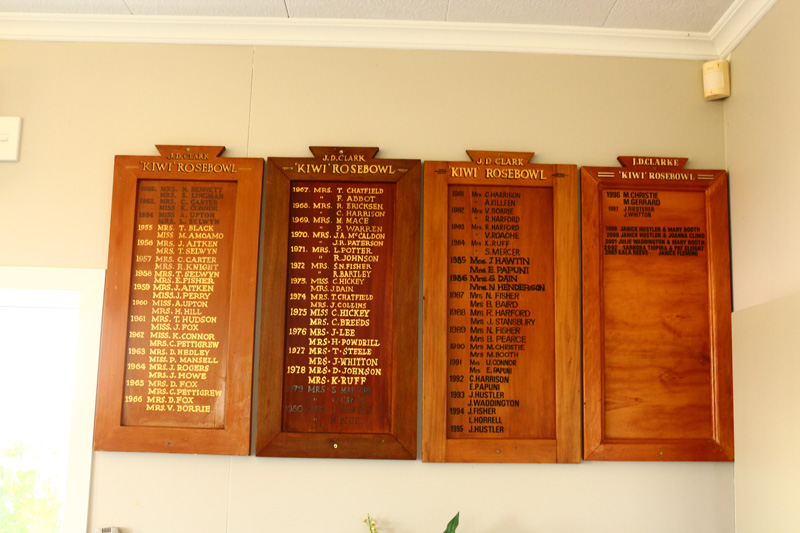 J.D. CLARK
'KIWI' ROSEBOWL
S. LINGMAN
MRS. C. CARTER
MISS K. CONNOR
1954 MISS A. UPTON
MRS. T. SELWYN
1955 MRS. T. BLACK
MISS M. AMGAMO
1956 MRS. J. AITKEN
MRS. T. SELWYN
1957 MRS. C. CARTER
MRS. R. KNIGHT
1958 MRS. T. SELWYN
MRS. E. FISHER
1959 MRS. J. AITKEN
MISS J. PERRY
1960 MISS A. UPTON
MRS. H. HILL
1961 MRS. T. HUDSON
MISS J. FOX
1962 MISS. K. CONNOR
MRS. C. PETTIGREW
1963 MRS. D. HEDLEY
MISS. P. MANSELL
1964 MRS. J. ROGERS
MRS. J. HOWE
1965 MRS. D. FOX
MRS. C. PETTIGREW
1966 MRS. D. FOX
MRS. V. BORRIE
J.D. CLARK
'KIWI' ROSEBOWL
1967. MRS. T. CHATFIELD
" F. ABBOT
1968. MRS. R. ERICKSEN
" C. HARRISON
1969. MRS. M. MACE
" P. WARREN
1970. MRS. J.A. McCALDON
" J.R. PATERSON
1971. MRS. L. POTTER
" R. JOHNSON
1972 MRS. S.N. FISHER
" R. BARTLEY
1973. MISS C. HICKEY
MRS. J. DAIN
1974 MRS. T. CHATFIELD
MRS. J. COLLINS
1975 MISS C. HICKEY
MRS. C. BREEDS
1976 MRS. J. LEE
MRS. H. POWDRILL
1977 MRS. T. STEELE
MRS. J. WHITTON
1978 MRS. D. JOHNSON
MRS. K. RUFF
1979 MRS. S.
1980 MRS.
J.D. CLARK
'KIWI' ROSEBOWL
1981 Mrs C. HARRISON
" A. KILLEEN
1982 Mrs V. BORRIE
" R. HARFORD
1983 Mrs R. HARFORD
" V. ROACHE
1984 Mrs K. RUFF
" S. MERCER
1985 Mrs J. HAWTIN
Mrs E. PAPUNI
1986 Mrs G. DAIN
Mrs N. HENDERSON
1987 Mrs N. FISHER
Mrs B. BAIRD
1988 Mrs R. HARFORD
Mrs J. STANSBURY
1989 Mrs N. FISHER
Mrs B. PEARCE
1990 Mrs M. CHRISTIE
Mrs M. BOOTH
1991 Mrs U. CONNOR
Mrs E. PAPUNI
1992 C. HARRISON
E. PAPUNI
1993 J. HUSTLER
J. WADDINGTON
1994 J. FISHER
L. HORRELL
1995 J. HUSTLER
J.D. CLARKE
'KIWI' ROSEBOWL
1996 M. CHRISTIE
M. GERRARD
1997 J. RIESTERER
J. WHITTON
1999 JANICE HUSTLER & MARY BOOTH
2000 JANICE HUSTLER & JOANNA CLING
2001 JULIE WADDINGTON & MARY BOOTH
2002 SANDRA TAIPIRA & PAT
2007 GALA REEVE JANICE FLEMING